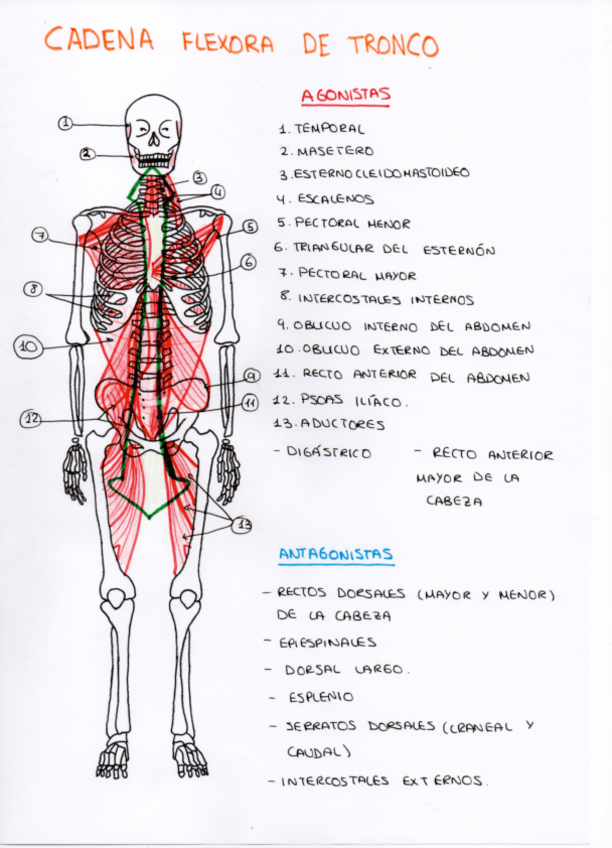 CADENA FLEXORA DE TRONCO
AGONISTAS
1. TEMPORAL
2. MASETERO
3. ESTERNOCLEIDOMASTOIDEO
4. ESCALENOS
5. PECTORAL MENOR
6. TRIANGULAR DEL ESTERNÓN
7. PECTORAL MAYOR
8. INTERCOSTALES INTERNOS
9. OBLICUO INTERNO DEL ABDOMEN
10. OBLICUO EXTERNO DEL ABDOMEN
11. RECTO ANTERIOR DEL ABDOMEN
12. PSOAS ILÍACO.
13. ADUCTORES
- DIGÁSTRICO
- RECTO ANTERIOR
MAYOR DE LA
CABEZA
ANTAGONISTAS
- RECTOS DORSALES (MAYOR Y MENOR)
DE LA CABEZA
- EPIESPINALES
- DORSAL LARGO.
- ESPLENIO
- SERRATOS DORSALES (CRANEAL Y
CAUDAL)
- INTERCOSTALES EXTERNOS.
1
2
3
4
5
6
7
8
9
10
11
12
13